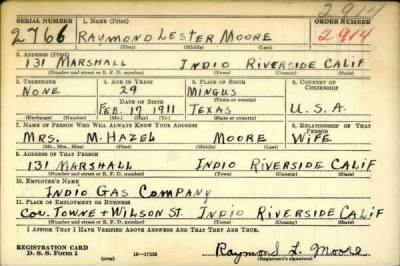 2914
SERIAL NUMBER 1. NAME (Print) ORDER NUMBER
2766 RAYMOND LESTER MOORE 2914
(First) (Middle) (Last)
2. ADDRESS (Print)
131 MARSHALL INDIO RIVERSIDE CALIF
(Number and street or R. F. D. number) (Town) (County) (State)
3. TELEPHONE 4. AGE IN YEARS 5. PLACE OF BIRTH 6. COUNTRY OF CITIZENSHIP
NONE 29 MINGUS
DATE OF BIRTH (Town or county)
FEB. 17 1911 TEXAS U.S.A.
(Exchange) (Number) (Mo.) (Day) (Yr.) (State or country)
7. NAME OF PERSON WHO WILL ALWAYS KNOW YOUR ADDRESS 8. RELATIONSHIP OF THAT PERSON
MRS. M. HAZEL MOORE WIFE
(Mr., Mrs., Miss) (First) (Middle) (Last)
9. ADDRESS OF THAT PERSON
131 MARSHALL INDIO RIVERSIDE CALIF
(Number and street or R. F. D. number) (Town) (County) (State)
10. EMPLOYER'S NAME
INDIO GAS COMPANY
11. PLACE OF EMPLOYMENT OR BUSINESS
COR. TOWNE + WILSON ST. INDIO RIVERSIDE CALIF
(Number and street or R. F. D. number) (Town) (County) (State)
I AFFIRM THAT I HAVE VERIFIED ABOVE ANSWERS AND THAT THEY ARE TRUE.
REGISTRATION CARD
D. S. S. Form 1 (over) 16-17105 Raymond L. Moore
(Registrant's signature)